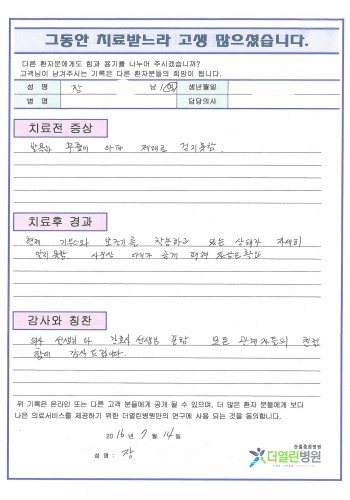 그동안 치료받느라 고생 많으셨습니다.
다른 환자분에게도 힘과 용기를 나누어 주시겠습니까?
고객님이 남겨주시는 기록은 다른 환자분들의 희망이 됩니다.
성 명 장 남/여 생년월일
병 명 담당의사
치료전 증상
아파 제대로 걷지못함.
치료후 경과
현재 기브스와 보조기를 착용하고 있는 상태라 자세히
알지 못함
감사와 칭찬
의사 선생님과 간호사 선생님 포함 모든 관계자들의 친절
감사드립니다.
위 기록은 온라인 또는 다른 고객 분들에게 공개 될 수 있으며, 더 많은 환자 분들에게 보다
나은 의료서비스를 제공하기 위한 더열린병원만의 연구에 사용 되는 것을 동의합니다.
2016년 7월 14일
성 명 : 장
관절중점병원
더열린병원